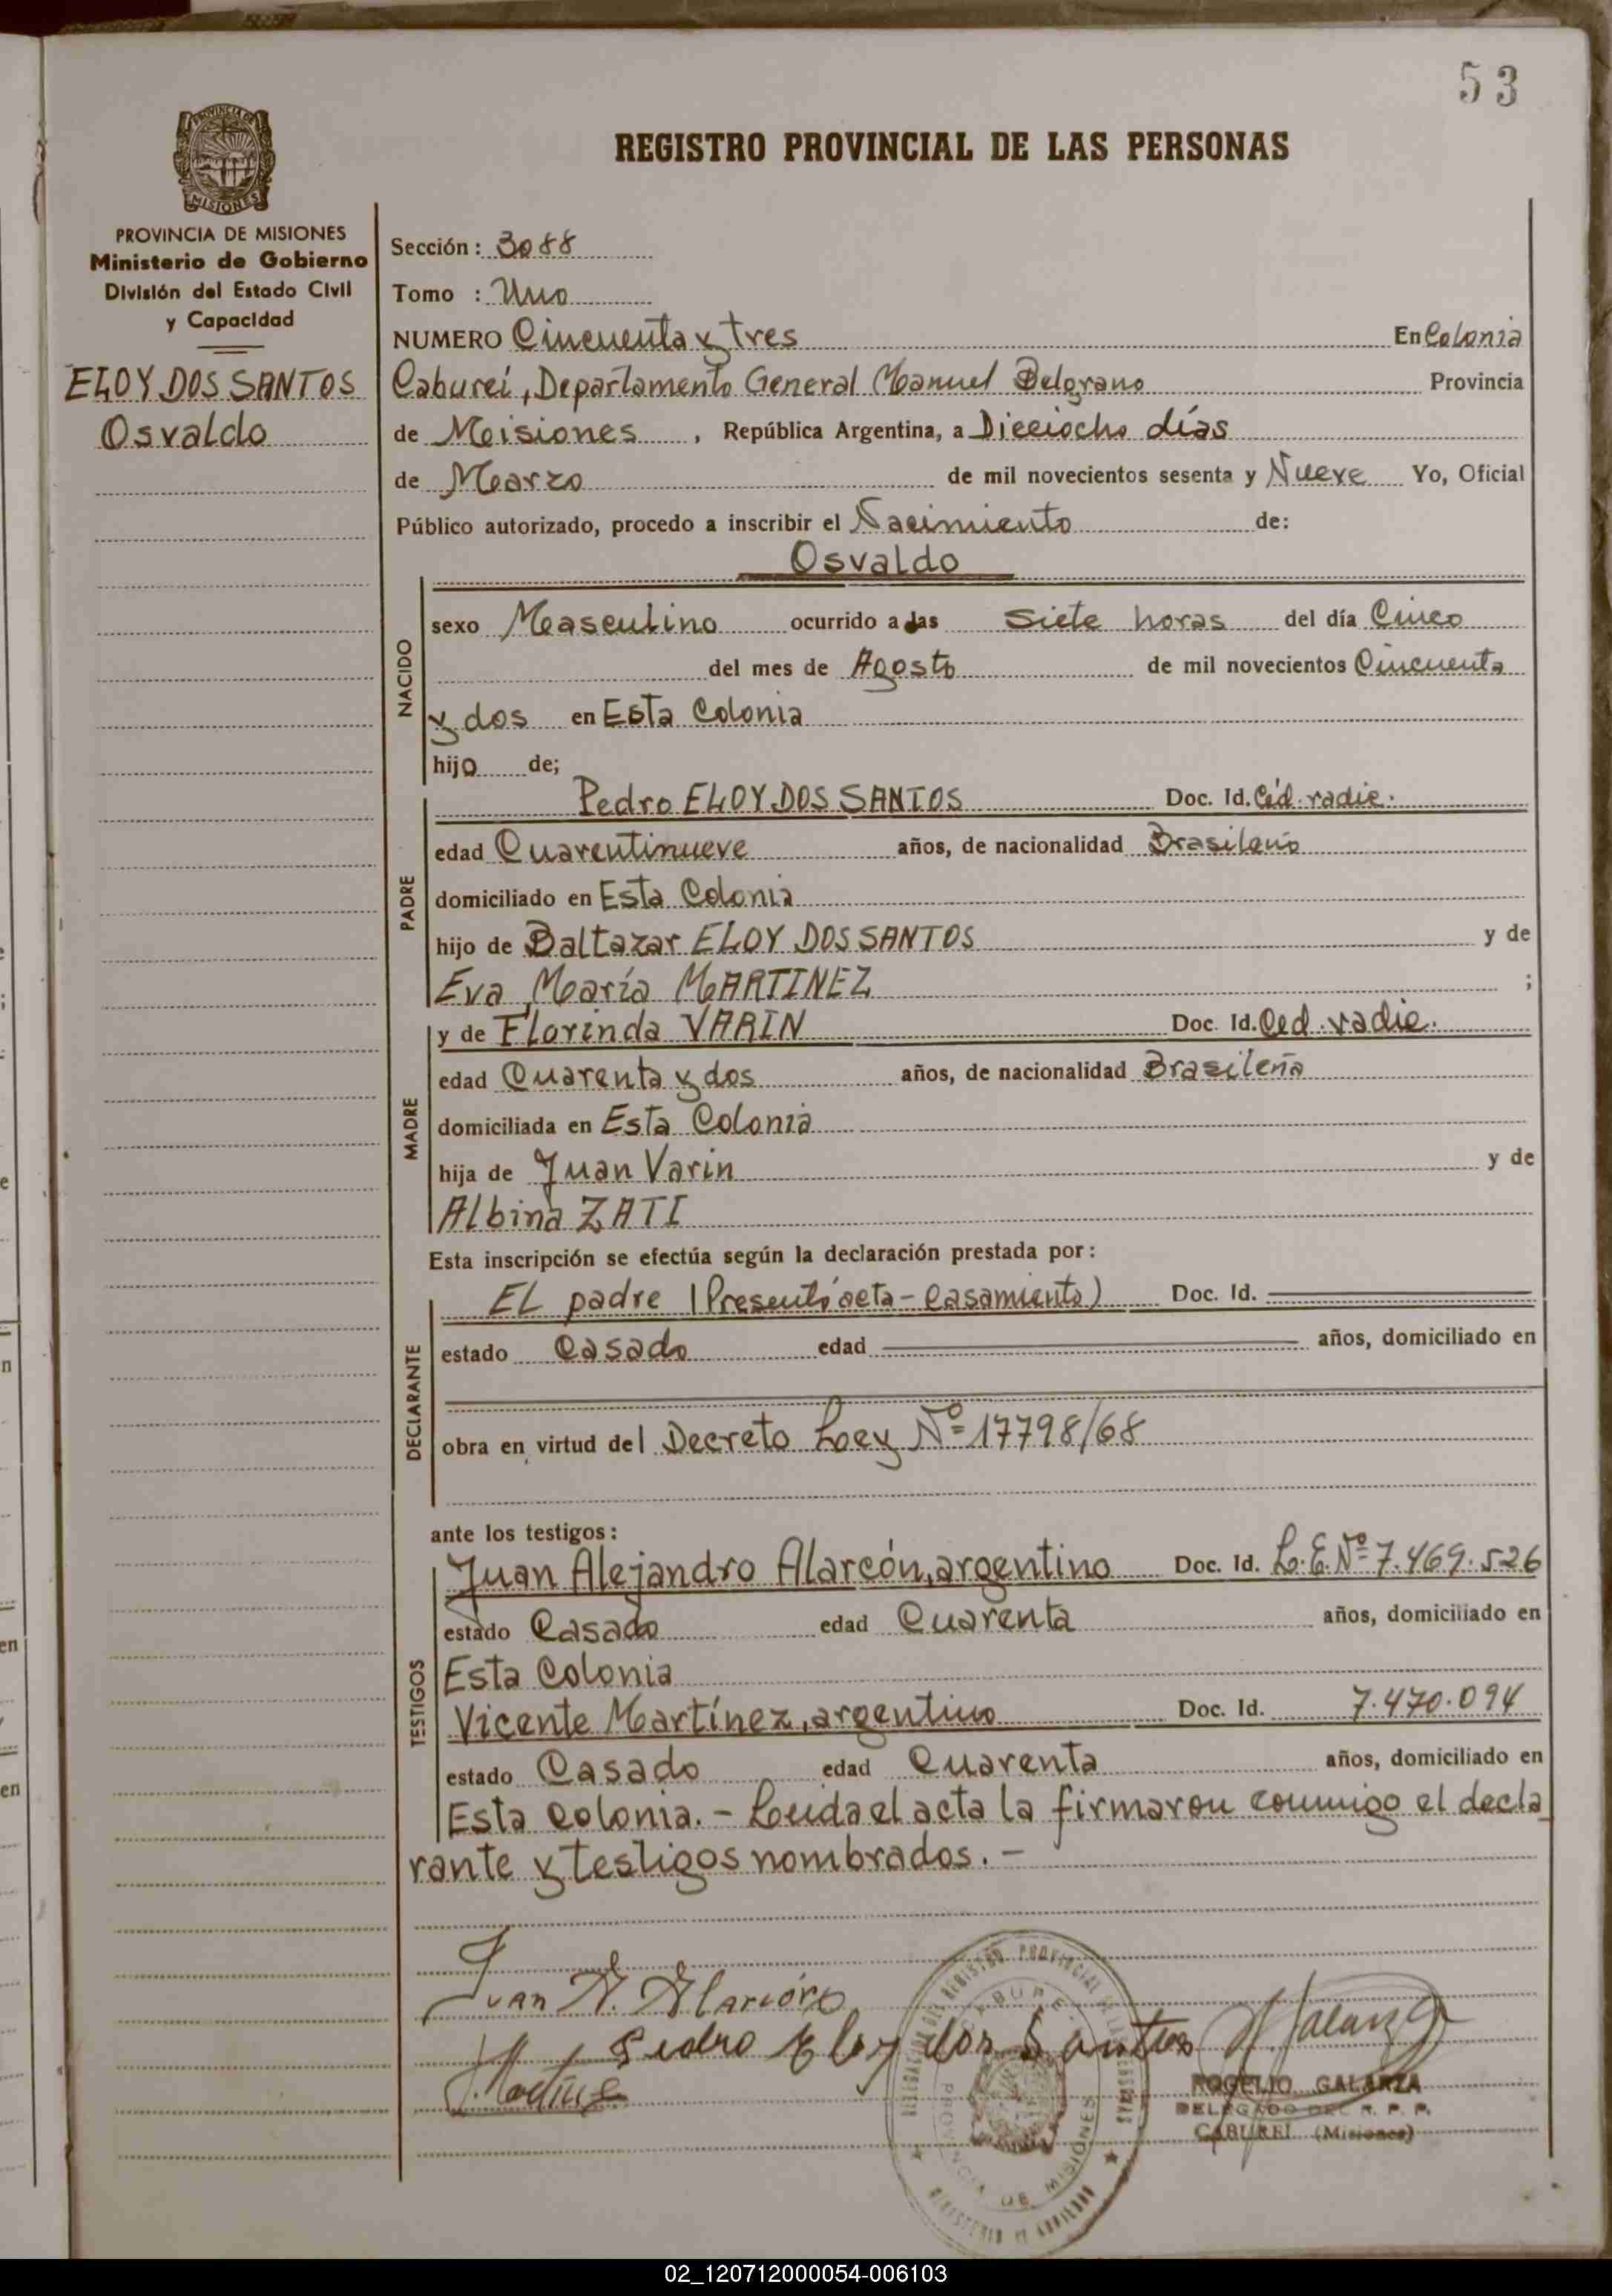 53
REGISTRO PROVINCIAL DE LAS PERSONAS
PROVINCIA DE MISIONES
Ministerio de Gobierno
División del Estado Civil
y Capacidad
ELOY DOS SANTOS
Osvaldo
Sección: 3088
Tomo : Uno
NUMERO Cincuenta y tres En Colonia
Cabureí, Departamento General Manuel Belgrano Provincia
de Misiones, República Argentina, a Dieciocho días
de Marzo de mil novecientos sesenta y Nueve Yo, Oficial
Público autorizado, procedo a inscribir el Nacimiento de:
Osvaldo
NACIDO
sexo Masculino ocurrido a las Siete horas del día Cinco
del mes de Agosto de mil novecientos Cincuenta
y dos en Esta Colonia
hijo de;
PADRE
Pedro ELOY DOS SANTOS Doc. Id. Céd. radic.
edad Cuarentinueve años, de nacionalidad Brasileño
domiciliado en Esta Colonia
hijo de Baltazar ELOY DOS SANTOS y de
Eva María MARTINEZ ;
MADRE
y de Florinda VARIN Doc. Id. Ced. radic.
edad Cuarenta y dos años, de nacionalidad Brasileña
domiciliada en Esta Colonia
hija de Juan Varin y de
Albina ZATI
Esta inscripción se efectúa según la declaración prestada por:
DECLARANTE
EL padre (Presentó acta - Casamiento) Doc. Id.
estado Casado edad años, domiciliado en
obra en virtud del Decreto Ley Nº 17798/68
ante los testigos:
TESTIGOS
Juan Alejandro Alarcón, argentino Doc. Id. L.E. Nº 7.469.526
estado Casado edad Cuarenta años, domiciliado en
Esta Colonia
Vicente Martínez, argentino Doc. Id. 7.470.094
estado Casado edad Cuarenta años, domiciliado en
Esta Colonia. - Leida el acta la firmaron conmigo el decla
rante y testigos nombrados. -
Juan A. Alarcón
Pedro Eloy dos Santos
ROGELIO GALARZA
DELEGADO DEL R. P. P.
CABUREÍ (Misiones)
PROVINCIA DE MISIONES
02_120712000054-006103